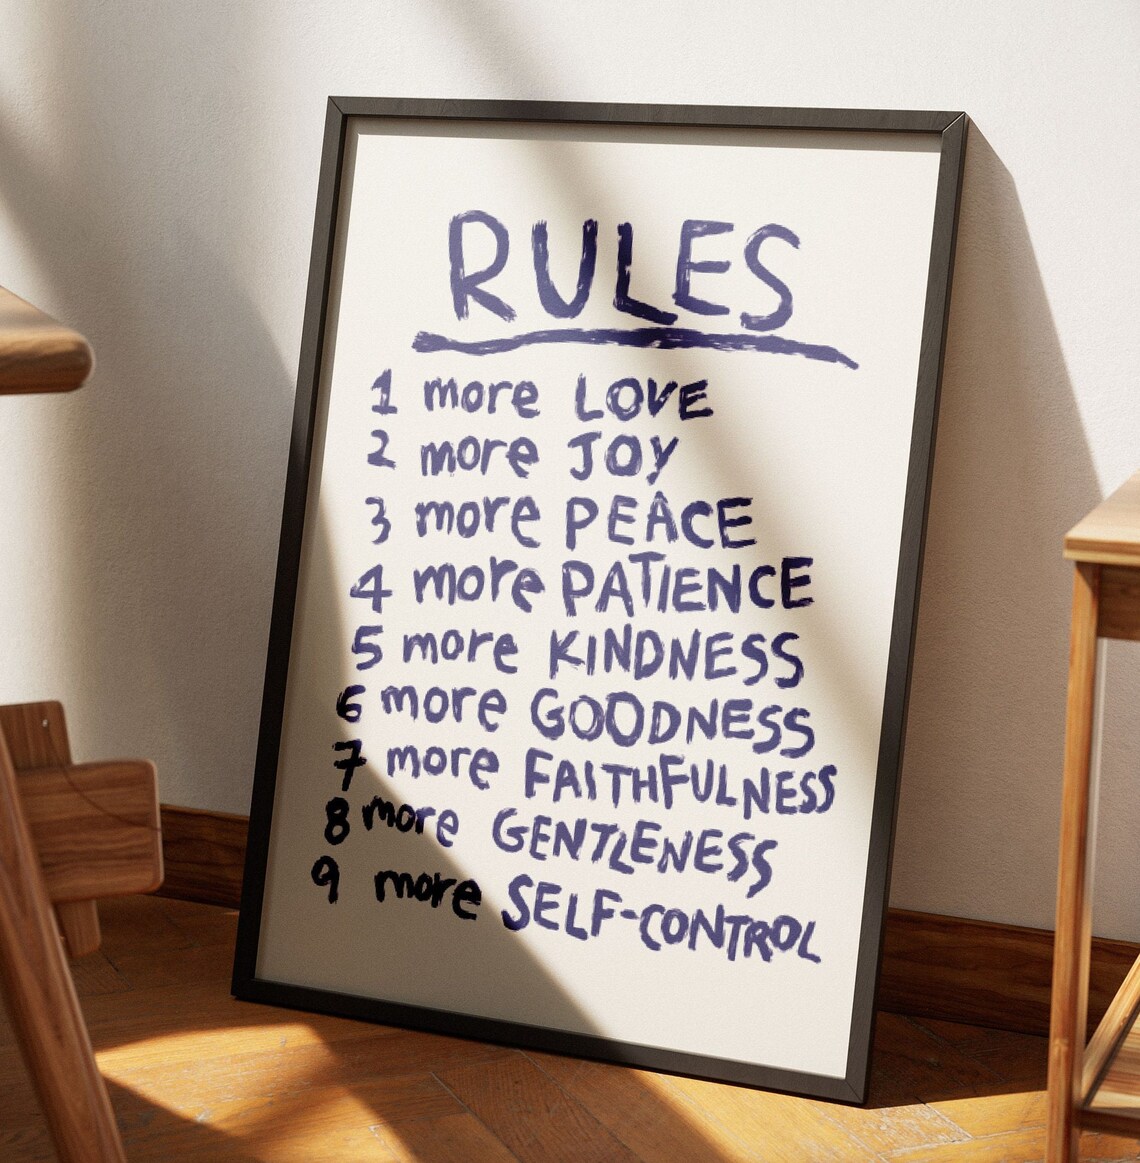 RULES
1 more LOVE
2 more JOY
3 more PEACE
4 more PATIENCE
5 more KINDNESS
6 more GOODNESS
7 more FAITHFULNESS
8 more GENTLENESS
9 more SELF-CONTROL